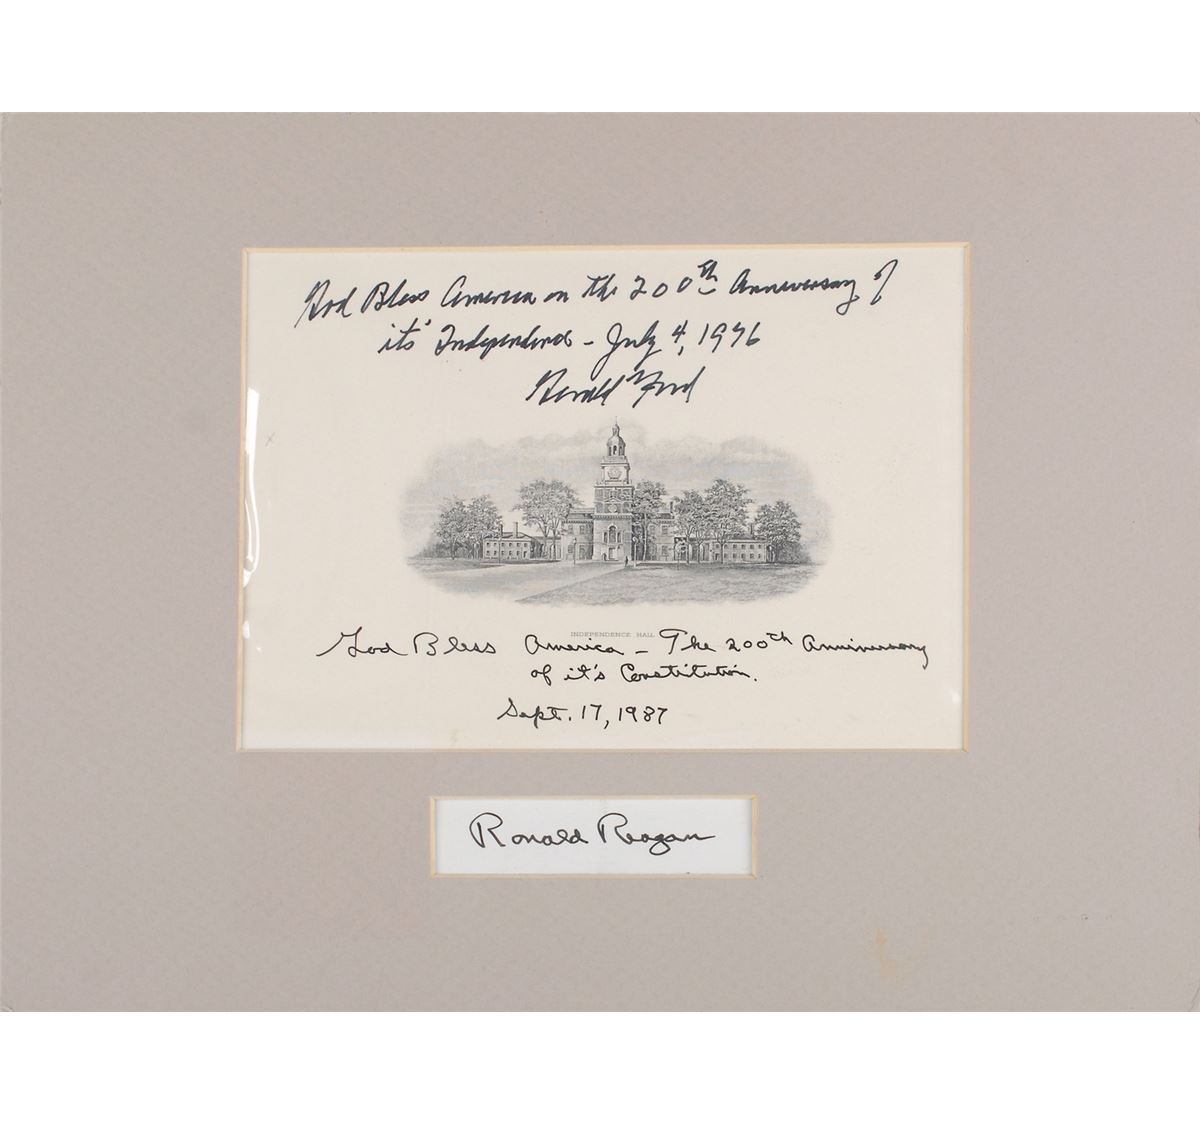 God Bless America on the 200th Anniversary of
its' Independence - July 4, 1976
Gerald Ford
INDEPENDENCE HALL
God Bless America - The 200th Anniversary
of it's Constitution.
Sept. 17, 1987
Ronald Reagan